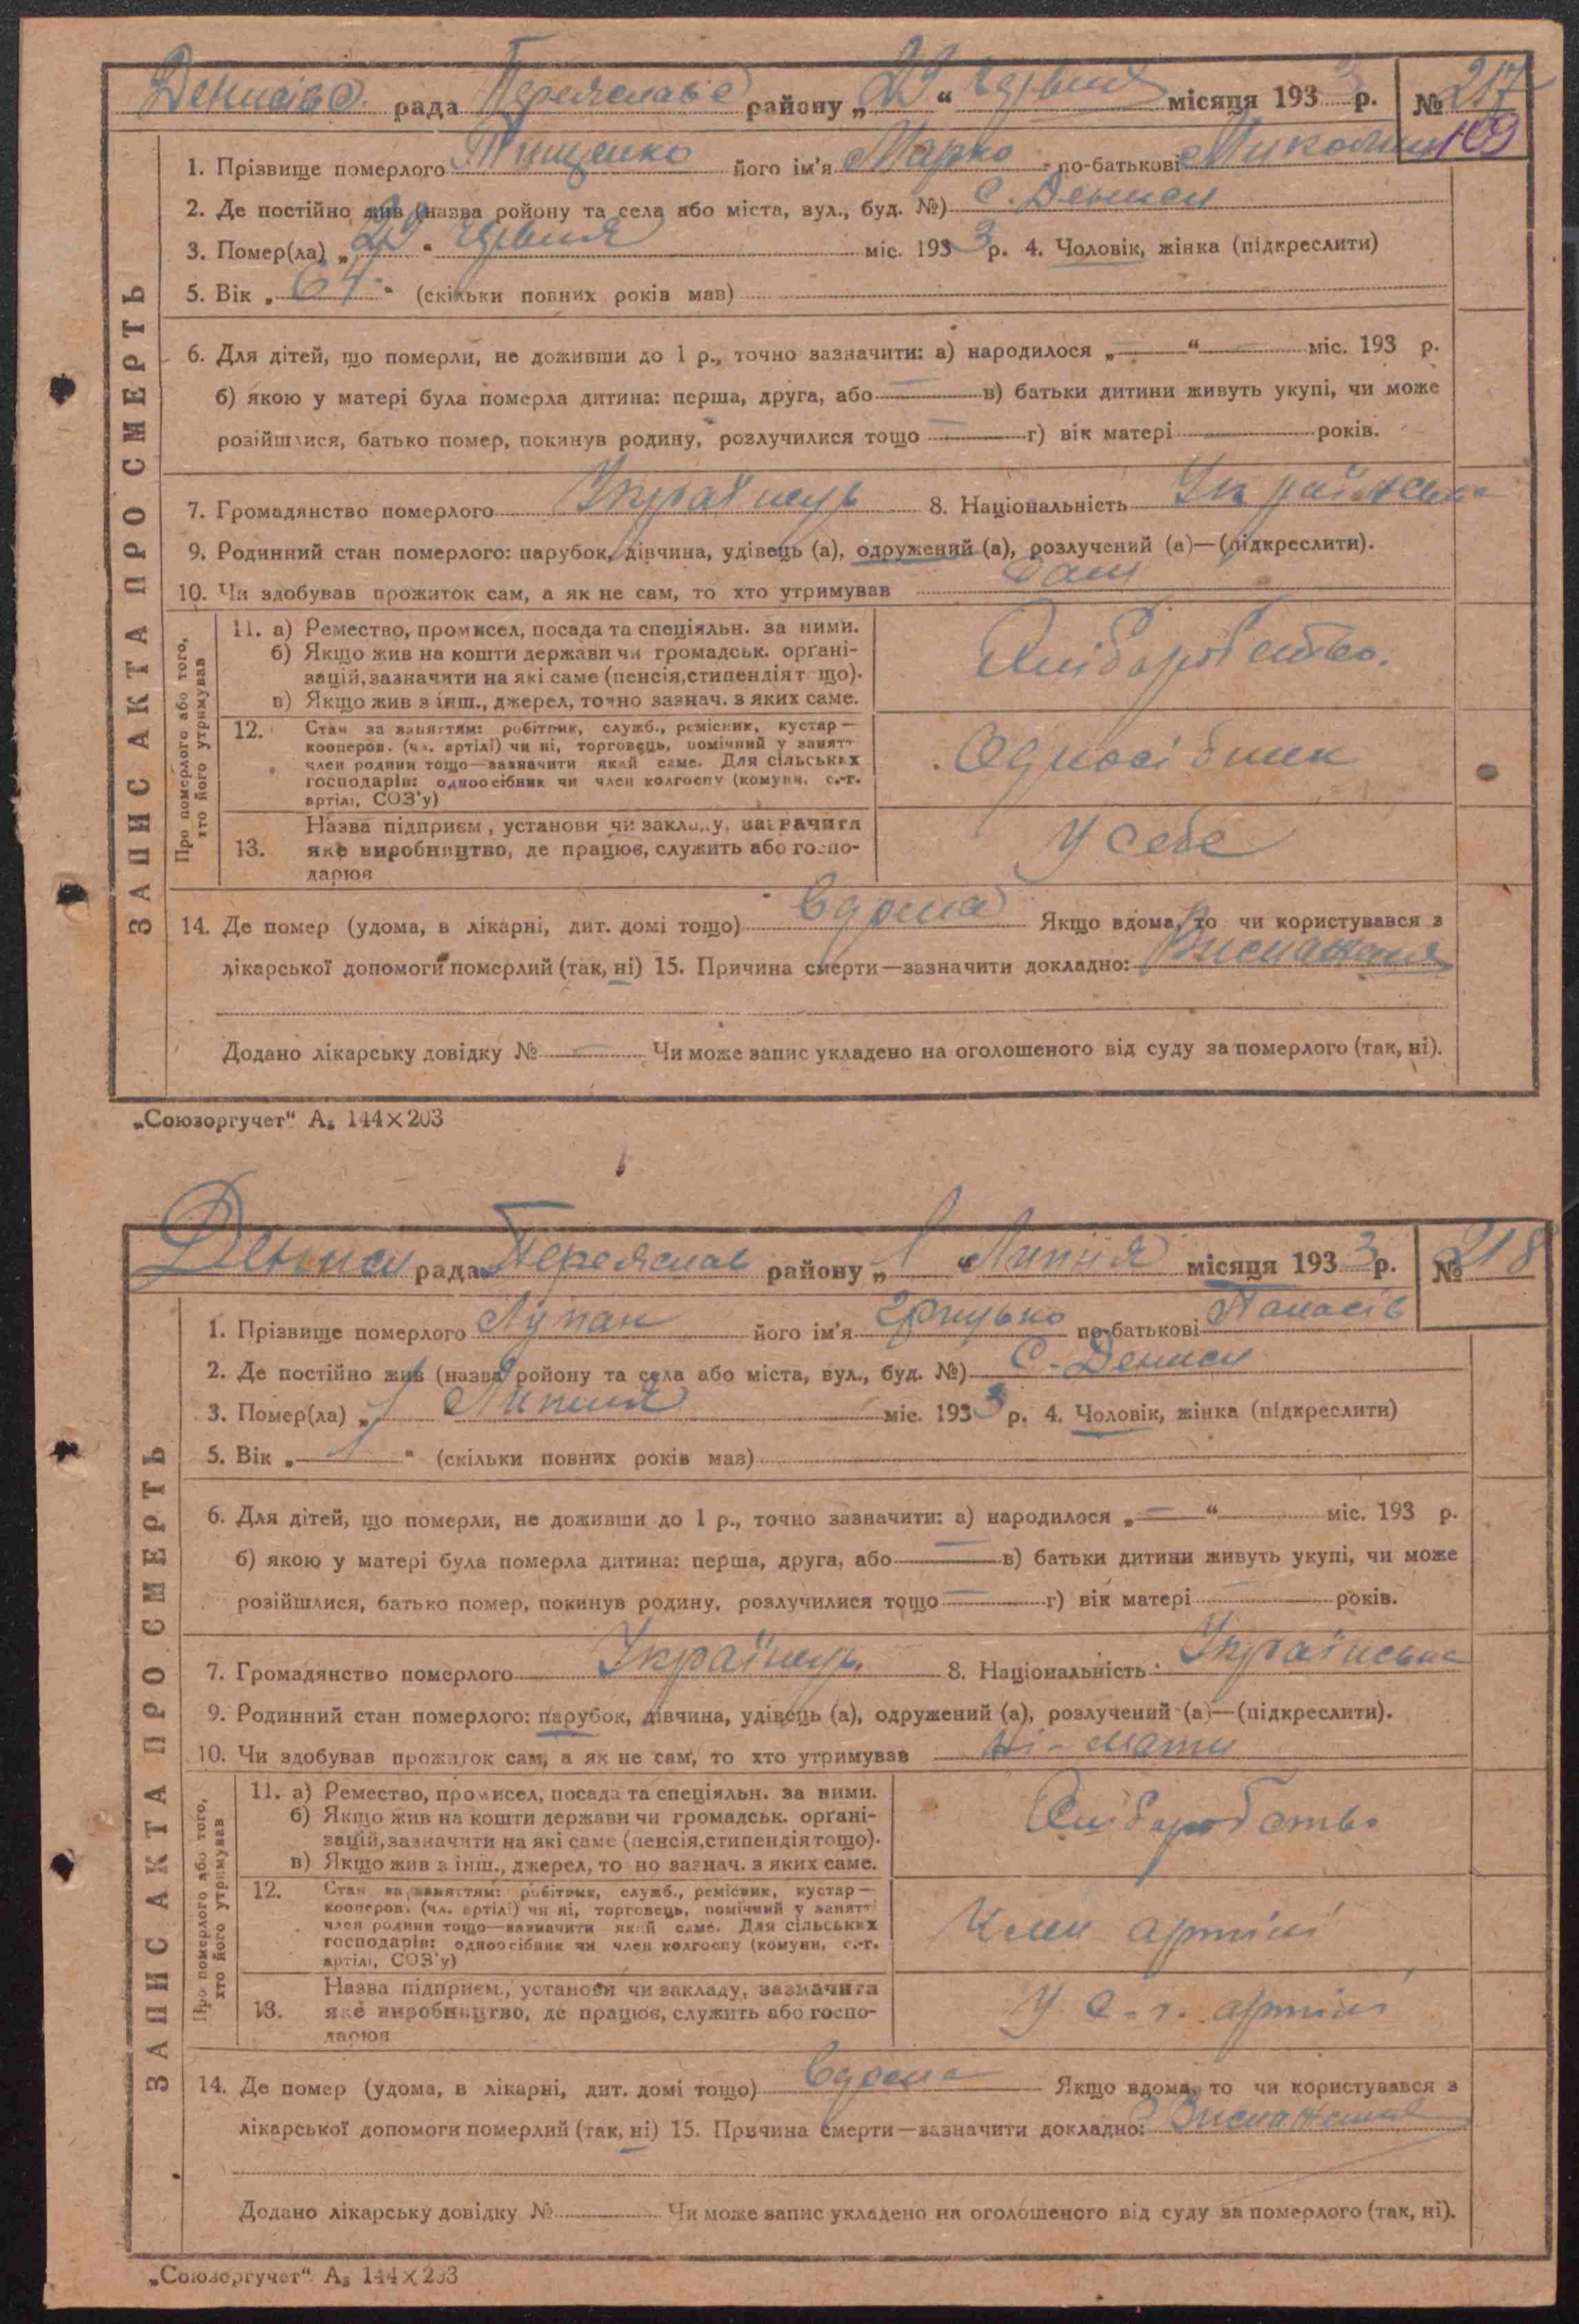 Денисівс. рада Переяславс району „29“ червня місяця 1933 р. № 217
109
1. Прізвище померлого Тищенко його ім'я Марко по-батькові
2. Де постійно жив (назва ройону та села або міста, вул., буд. №) С. Дениси
3. Помер(ла) „29“ червня міс. 1933 р. 4. Чоловік, жінка (підкреслити)
5. Вік „64“ (скільки повних років мав)
6. Для дітей, що померли, не доживши до 1 р., точно зазначити: а) народилося „—“ — міс. 193 р.
б) якою у матері була померла дитина: перша, друга, або — в) батьки дитини живуть укупі, чи може
розійшлися, батько помер, покинув родину, розлучилися тощо — г) вік матері років.
7. Громадянство померлого Українець 8. Національність Українська
9. Родинний стан померлого: парубок, дівчина, удівець (а), одружений (а), розлучений (а)—(підкреслити).
10. Чи здобував прожиток сам, а як не сам, то хто утримував сам
ЗАПИС АКТА ПРО СМЕРТЬ
Про померлого або того, хто його утримував
11. а) Ремество, промисел, посада та спеціяльн. за ними.
б) Якщо жив на кошти держави чи громадськ. органі-
зацій, зазначити на які саме (пенсія, стипендія т що).
в) Якщо жив з інш., джерел, точно зазнач. з яких саме.
Хліборобство.
12. Стан за заняттям: робітник, служб., ремісник, кустар—
кооперов. (чл. артілі) чи ні, торговець, помічний у занятт
член родини тощо—зазначити який саме. Для сільських
господарів: одноосібник чи член колгоспу (комуни, с.-г.
артілі, СОЗ'у)
Односібник
Назва підприєм, установи чи закладу, зазначити
13. яке виробництво, де працює, служить або госпо-
дарює
У себе
14. Де помер (удома, в лікарні, дит. домі тощо) вдома Якщо вдома, то чи користувався з
лікарської допомоги померлий (так, ні) 15. Причина смерти—зазначити докладно: Виснаження
Додано лікарську довідку № — Чи може запис укладено на оголошеного від суду за померлого (так, ні).
„Союзоргучет“ А₅ 144×203
Дениси рада Переяслав району „1“ Липня місяця 1933 р. № 218
1. Прізвище померлого Лупан його ім'я Грицько по-батькові Панасів
2. Де постійно жив (назва ройону та села або міста, вул., буд. №) С. Дениси
3. Помер(ла) „1 Липня міс. 1933 р. 4. Чоловік, жінка (підкреслити)
5. Вік „ “ (скільки повних років мав)
6. Для дітей, що померли, не доживши до 1 р., точно зазначити: а) народилося „—“ міс. 193 р.
б) якою у матері була померла дитина: перша, друга, або — в) батьки дитини живуть укупі, чи може
розійшлися, батько помер, покинув родину, розлучилися тощо — г) вік матері — років.
7. Громадянство померлого Українець. 8. Національність Українська
9. Родинний стан померлого: парубок, дівчина, удівець (а), одружений (а), розлучений (а)—(підкреслити).
10. Чи здобував прожиток сам, а як не сам, то хто утримував ні - мати
ЗАПИС АКТА ПРО СМЕРТЬ
Про померлого або того, хто його утримував
11. а) Ремество, промисел, посада та спеціяльн. за ними.
б) Якщо жив на кошти держави чи громадськ. органі-
зацій, зазначити на які саме (пенсія, стипендія тощо).
в) Якщо жив з інш., джерел, то но зазнач. з яких саме.
Хліборобство
12. Стан за заняттям: робітник, служб., ремісник, кустар—
кооперов. (чл. артілі) чи ні, торговець, помічний у занятт
член родини тощо—зазначити який саме. Для сільських
господарів: одноосібник чи член колгоспу (комуни, с.-г.
артілі, СОЗ'у)
Член артілі
Назва підприєм., установи чи закладу, зазначити
13. яке виробництво, де працює, служить або госпо-
дарює
У с.-г. артілі
14. Де помер (удома, в лікарні, дит. домі тощо) вдома Якщо вдома, то чи користувався з
лікарської допомоги померлий (так, ні) 15. Причина смерти—зазначити докладно: Виснаження
Додано лікарську довідку № Чи може запис укладено на оголошеного від суду за померлого (так, ні).
„Союзоргучет“ А₅ 144×203